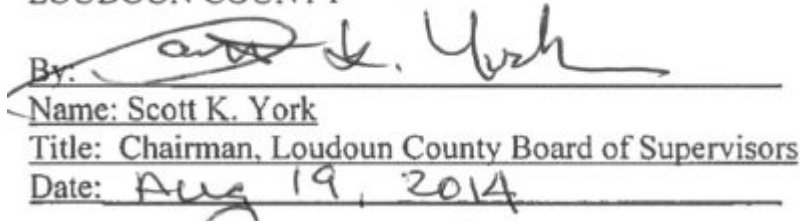 LOUDOUN COUNTY
By: Scott K. York
Name: Scott K. York
Title: Chairman, Loudoun County Board of Supervisors
Date: Aug 19, 2014